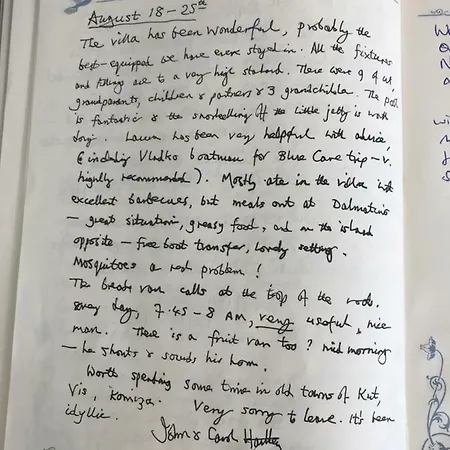 August 18-25th
The villa has been wonderful, probably the
best-equipped we have ever stayed in. All the fixtures
and fittings are to a very high standard. There were 9 of us,
grandparents, children & partners & 3 grandchildn. The pool
is fantastic & the snorkelling off the little jetty is worth
doing. has been very helpful with advice,
(including Vladko boatman for Blue Cave trip - v.
highly recommended). Mostly ate in the villa with
excellent barbecues, but meals out at Dalmatino
- great situation, greasy food, and on the island
opposite - free boat transfer, lovely setting.
Mosquitoes a real problem!
The bread van calls at the top of the road.
every day, 7.45 - 8 AM, very useful, nice
man. There is a fruit van too? mid morning
- he shouts & sounds his horn.
Worth spending some time in old towns of Kut,
Vis, Komiza. Very sorry to leave. It's been
idyllic.
John & Carol